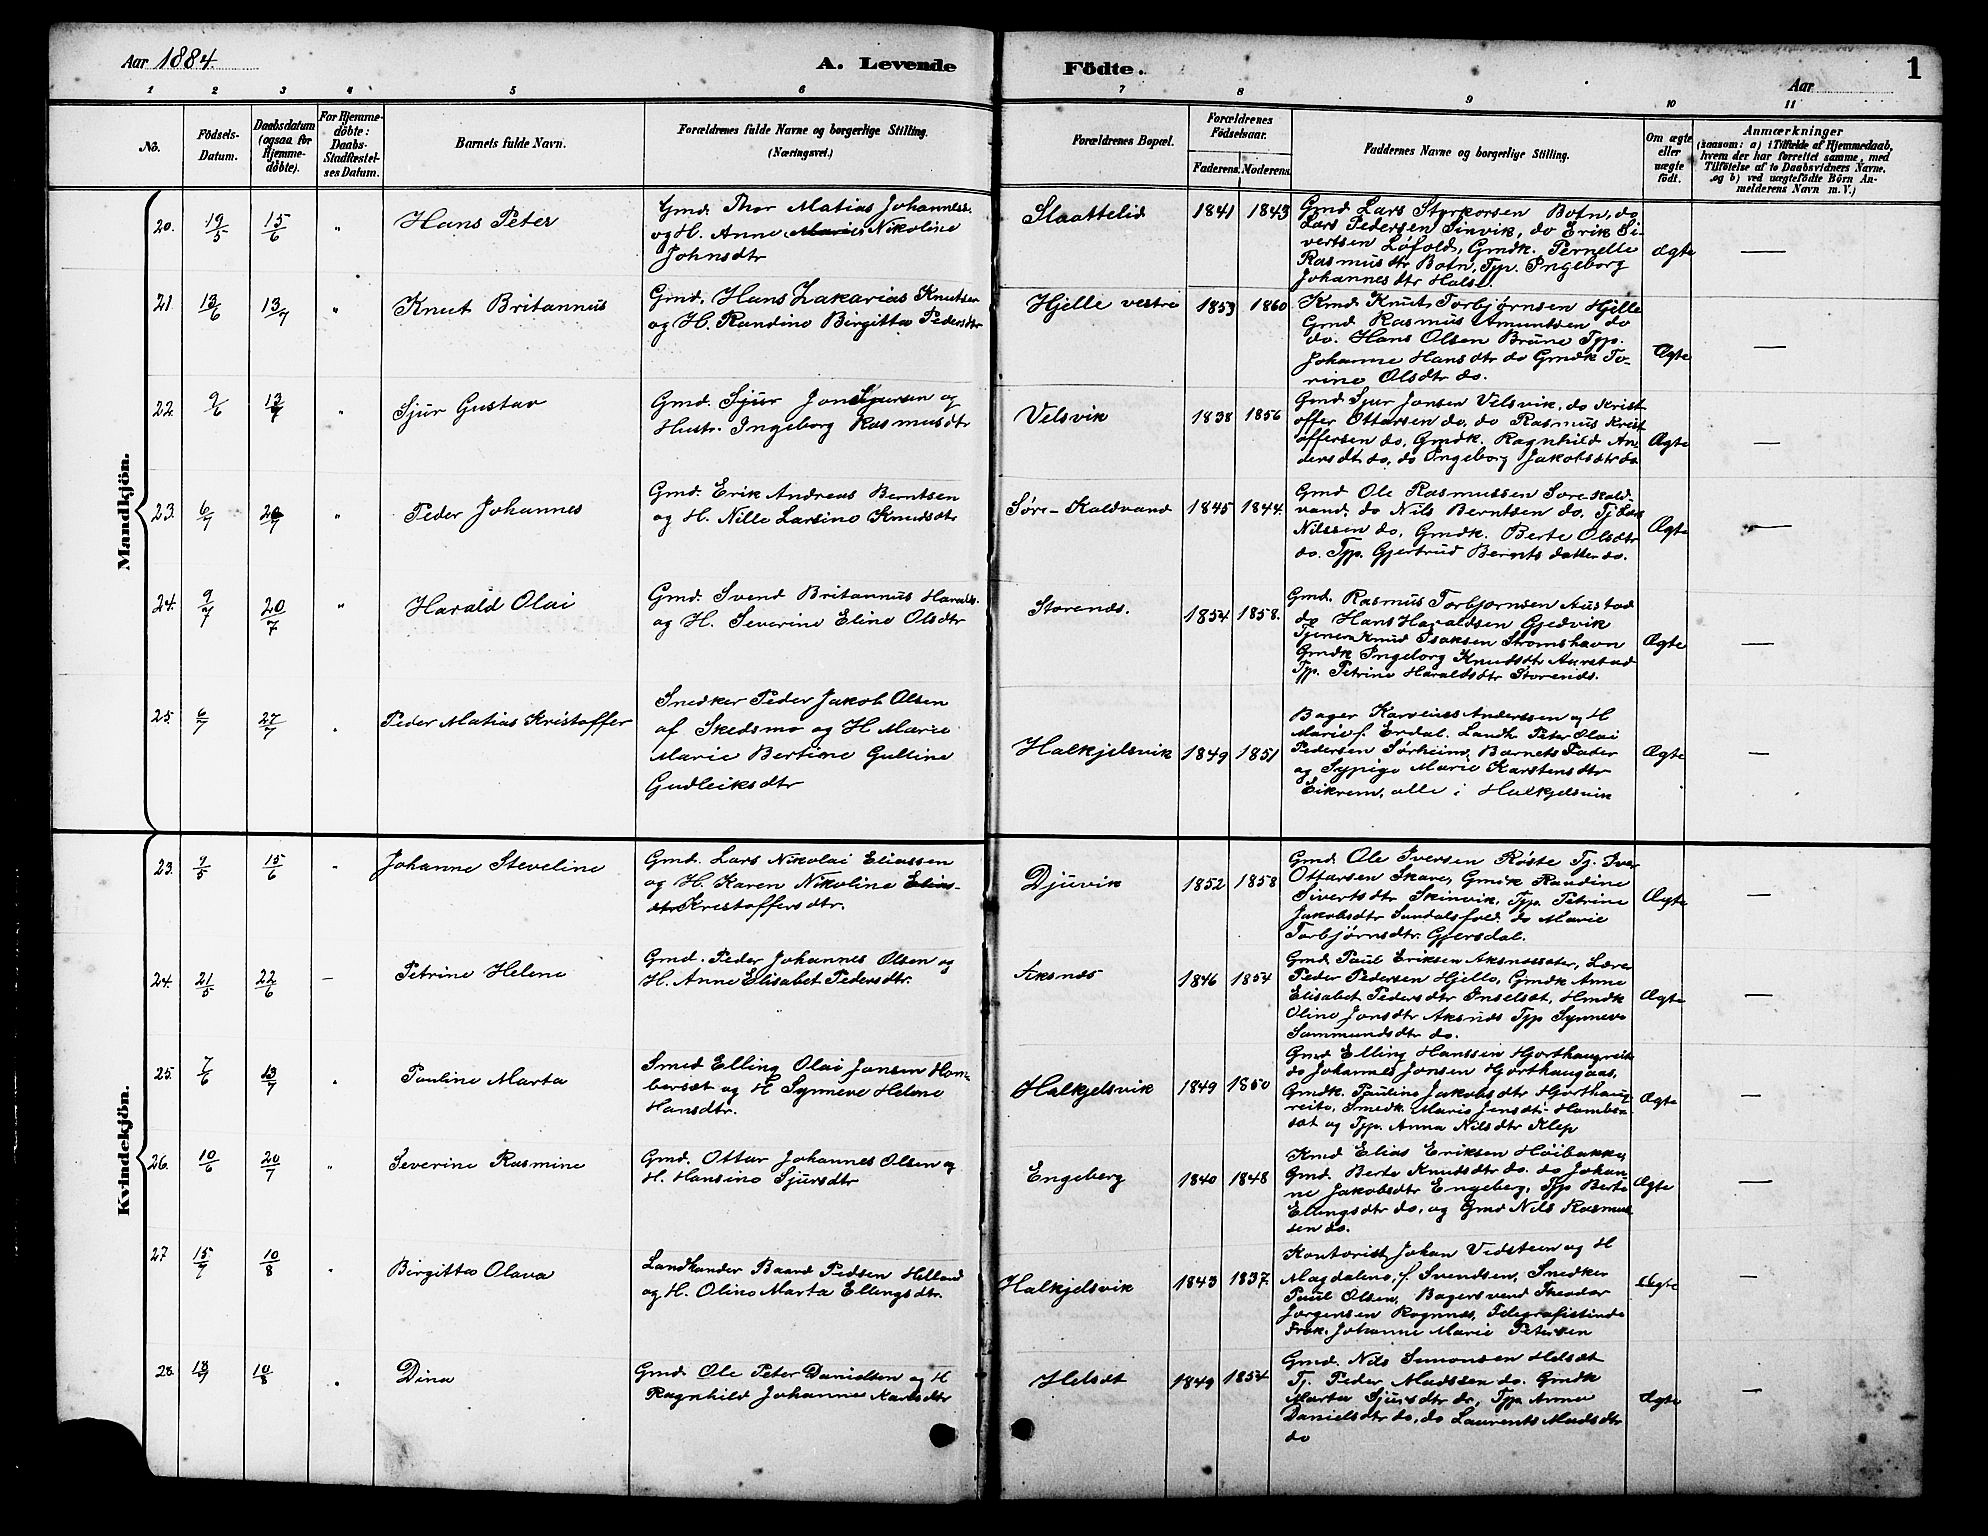 Aar 1884.
A. Levende Födte.
Aar
1
1 2 3 4 5 6 7 8 9 10 11
No.
Födsels-
Datum.
Daabsdatum
(ogsaa for
Hjemme-
döbte).
For Hjemme-
döbte:
Daabs-
Stadfæstel-
ses Datum.
Barnets fulde Navn.
Forældrenes fulde Navne og borgerlige Stilling.
(Næringsvei.)
Forældrenes Bopæl.
Forældrenes
Födselsaar.
Faderens. Moderens.
Faddernes Navne og borgerlige Stilling.
Om ægte
eller
uægte
födt.
Anmærkninger
(saasom: a) i Tilfælde af Hjemmedaab,
hvem der har forrettet samme, med
Tilföielse af to Daabsvidners Navne,
og b) ved uægtefödte Börn An-
melderens Navn m. V.)
Mandkjön.
20. 19/5 15/6 " Hans Peter
Gmd. Thor Matias Johanness.
og H. Anne Marie Nikoline
Johnsdtr
Slaattelid 1841 1843
Gmd Lars Styrkorsen Botn, do
Lars Pedersen Sinvik, do Erik Si-
vertsen Løfold, Gmdk Pernelle
Rasmusdtr Botn, Tjp. Ingeborg
Johannesdtr Halse.
ægte —
21. 13/6 13/7 " Knut Britannus
Gmd. Hans Zakarias Knutsen
og H. Randine Birgitta Pedersdtr
Hjelle vestre 1853 1860
Kmd. Knut Torbjørnsen Hjelle
Gmd Rasmus Amundsen do
do. Hans Olsen Brune Tjp.
Johanne Hansdtr do Gmdk To-
rine Olsdtr do.
Ægte —
22. 9/6 13/7 " Sjur Gustav
Gmd. Sjur Jon Sjursen og
Hustr. Ingeborg Rasmusdtr
Velsvik 1838 1856
Gmd Sjur Jonsen Velsvik, do Krist
offer Ottarsen do, do Rasmus Krist
offersen do, Gmdk. Ragnhild An-
dersdt do, do Ingeborg Jakobsdtr do
Ægte —
23. 6/7 20/7 " Peder Johannes
Gmd. Erik Andreas Berntsen
og H. Nille Larsine Knudsdtr
Søre-Kaldvand 1845 1844.
Gmd Ole Rasmussen Søre-Kald-
vand, do Nils Berntsen do, Tj Lars
Nilssen do, Gmdk. Berte Olsdtr
do. Tjp. Gjertrud Bernts datter do.
Ægte —
24. 9/7 20/7 " Harald Olai
Gmd. Svend Britannus Haralds.
og H. Severine Eline Olsdtr
Storends. 1854 1858.
Gmd. Rasmus Torbjornsen Austad
do Hans Haraldsen Gjedvik
Tjener Knud Isaksen Stromshavn
Gmdk Ingeborg Knudsdtr Aurstad
Tjp. Petrine Haraldsdtr Storends.
Ægte —
25 6/7 27/7 . Peder Matias Kristoffer
Snedker Peder Jakob Olsen
af Skedsmo og H Marie
Marie Bertine Gultine
Gudleiksdtr
Halkjelsvik 1849 1851
Bager Karolius Anderssen og H
Marie f. Erdal. Landh. Peter Olai
Pedersen Sørheim, Barnets Fader
og Sypige Marie Karstensdtr
Eikrem, alle i Halkjelsvik
Ægte —
Kvindekjön.
23. 9/5 15/6 " Johanne Steveline
Gmd. Lars Nikolai Eliassen
og H. Karen Nikoline Elias-
dtr Kristoffersdtr.
Djuvik 1852 1858
Gmd. Ole Iversen Røste Tj. Iver
Ottarsen Skare, Gmdk Randine
Sivertsdtr Skinvik, Tjp. Petrine
Jakobsdtr Sundalsfold. do Marie
Torbjørnsdtr. Gjersdal.
Ægte —
24. 21/5 22/6 — Petrine Helene
Gmd. Peder Johannes Olsen og
H. Anne Elisabet Pedersdtr.
Aksnes 1846 1854
Gmd. Paul Eriksen Aksnessæter, Lærer
Peder Pedersen Hjelle, Gmdk Anne
Elisabet Pedersdtr Inselset, Hmdk
Oline Jonsdtr Aksnes Tjp Synneve
Sammundsdtr do.
Ægte —
25. 7/6 13/7 " Pauline Marta
Smed Elling Olai Jonsen Ham-
berset og H Synneve Helene
Hansdtr.
Halkjelsvik 1849 1850
Gmd Elling Hanssen Hjorthaugreit
do Johannes Jonsen Hjorthaugaas,
Gmdk. Pauline Jakobsdtr Hjorthaug
reite, Smedk. Marie Jensdt- Hamber
set og Tjp. Anna Nilsdtr Klep
Ægte —
26. 10/6 20/7 " Severine Rasmine
Gmd. Ottar Johannes Olsen og
H. Hansine Sjursdtr
Engeberg 1840 1848
Kmd Elias Eriksen Høibakke,
Gmd. Berte Knudsdtr do. do Johan-
ne Jakobsdtr Engeberg, Tjp Berte
Ellingsdtr do, og Gmd Nils Rasmus
sen do.
Ægte —
27 15/7 10/8 . Birgitte Olava
Landhander Baard Pedsen Helland
og H. Oline Marta Ellingsdtr.
Halkjelsvik 1843 1837.
Kontorist Johan Vedsteen og H
Magdalene, f. Svendsen, Snedker
Paul Olsen, Bagersvend Theodor
Jørgensen Rognnes, Telegrafistinde
Frøk. Johanne Marie Petersen
Ægte —
28. 18/7 10/8 . Dina
Gmd. Ole Peter Danielsen og H
Ragnhild Johanne Karlsdtr
Helset 1849 1854
Gmd. Nils Simonsen Helset
Tj. Peder Madssen do. Gmdk
Marta Sjursdtr do, Tjp. Anne
Danielsdtr do, do Laurents Madsdtr
do
Ægte —